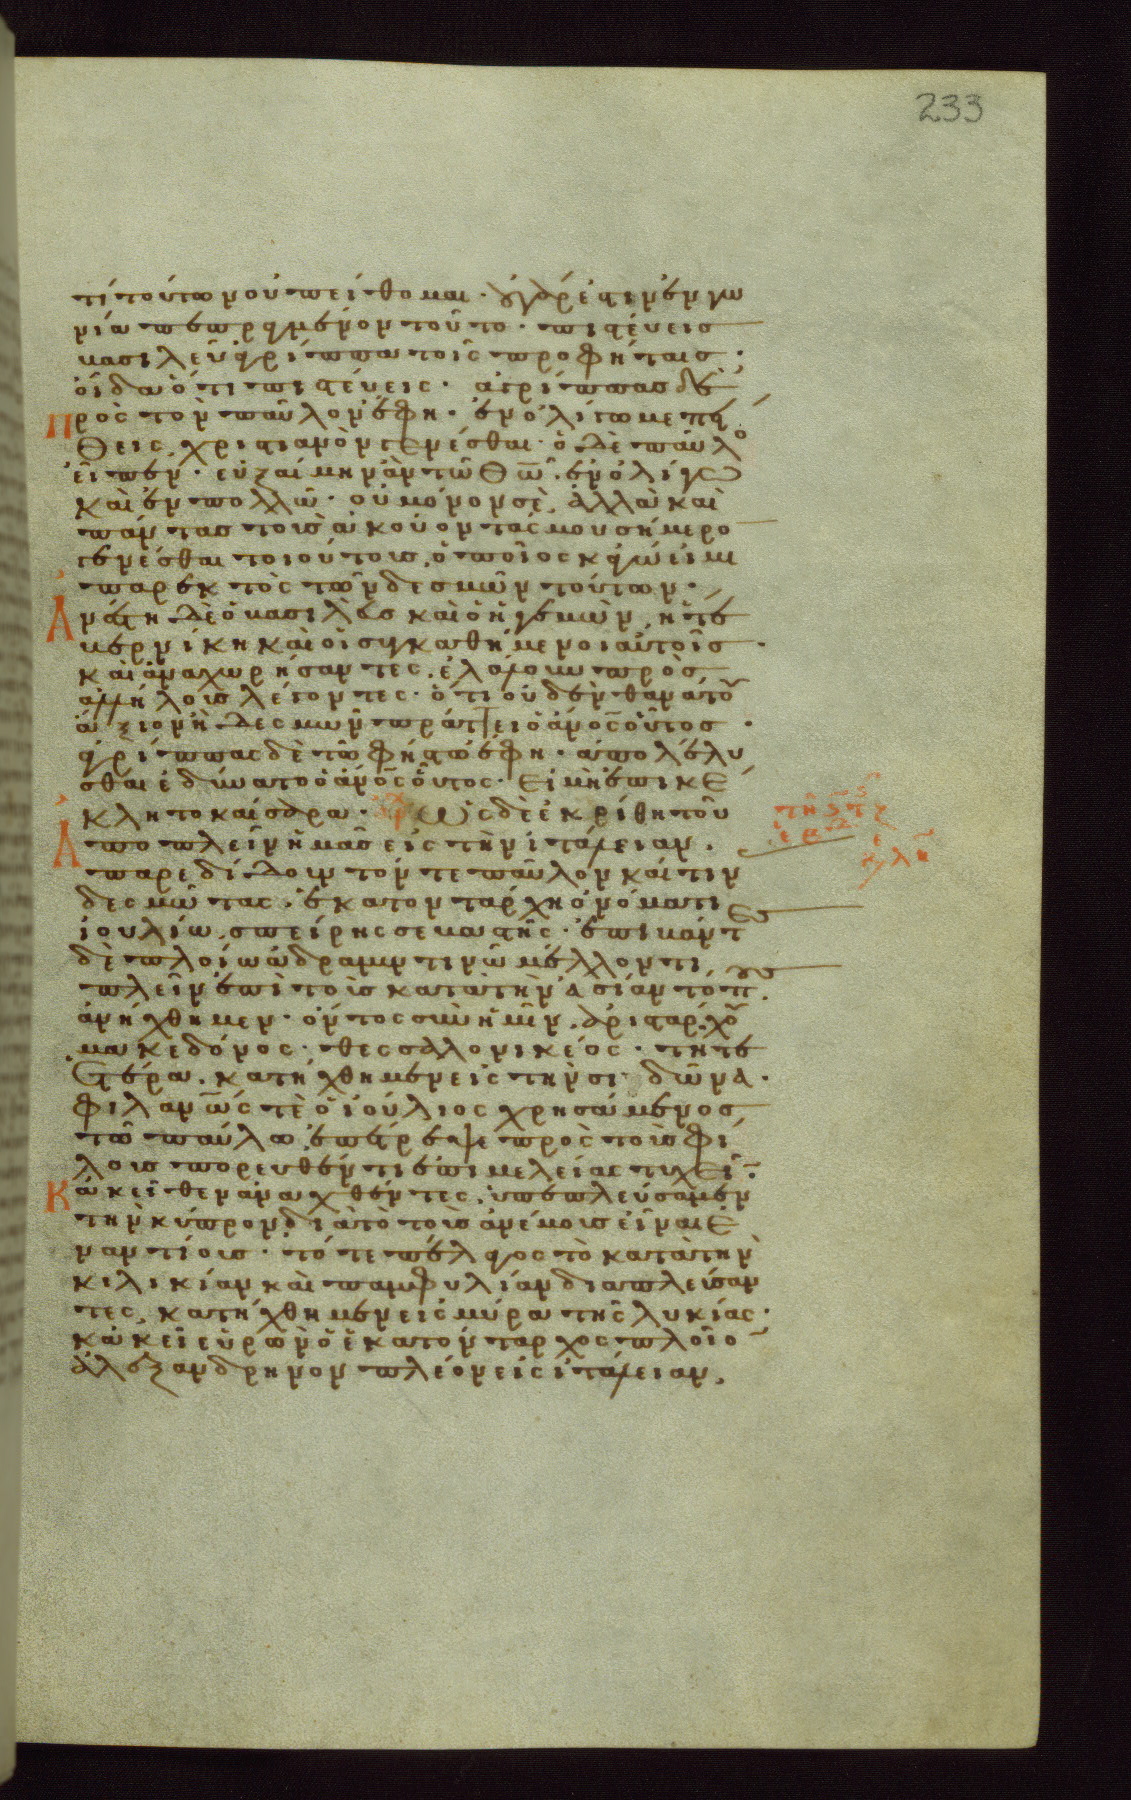 233
τι τούτων οὐ πείθομαι· οὐ γάρ ἐστιν ἐν γω
νία πεπραγμένον τοῦτο· πιστεύεις
βασιλεῦ ἀγρίππα τοῖς προφήταις;
οἶδα ὅτι πιστεύεις· ἀγρίππας δὲ
πρὸς τὸν παῦλον ἔφη· ἐν ὀλίγω με πεί
θεις χριστιανὸν γενέσθαι· ὁ δὲ παῦλο
εἶπεν· εὐξαίμην ἂν τῶ θω̅· ἐν ὀλίγω
καὶ ἐν πολλῶ· οὐ μόνον σὲ ἀλλὰ καὶ
πάντας τοὺς ἀκούοντάς μου σήμερο
γενέσθαι τοιούτους, ὁποῖος κἀγώ εἰμι
παρεκτὸς τῶν δεσμῶν τούτων·
Ἀνέστη δὲ ὁ βασιλεὺς καὶ ὁ ἡγεμὼν, ἥ τε
βερνίκη καὶ οἱ συγκαθήμενοι αὐτοῖς·
καὶ ἀναχωρήσαντες, ἐλάλουν πρὸς
ἀλλήλους λέγοντες· ὅτι οὐδὲν θανάτου
ἄξιον ἢ δεσμῶν πράττει ὁ ἀνο̅ς οὗτος·
ἀγρίππας δὲ τῶ φήστω ἔφη· ἀπολελύ
σθαι ἐδύνατο ὁ ἀνο̅ς οὗτος· εἰ μὴ ἐπικέ
κλητο καίσαρα· Ὡς δὲ ἐκρίθη τοῦ
Ἀποπλεῖν ἡμᾶς εἰς τὴν ἰταλίαν,
παρεδίδουν τόν τε παῦλον καί τιν
δεσμώτας, ἑκατοντάρχη ὀνόματι
ἰουλίω, σπείρης σεβαστῆς· ἐπιβάντες
δὲ πλοίω ἀδραμυντινῶ μέλλοντι
πλεῖν ἐπὶ τοὺς κατὰ τὴν ἀσίαν τόπους,
ἀνήχθημεν· ὄντος σὺν ἡμῖν ἀριστάρχου
μακεδόνος· θεσσαλονικέος· τῆ τε
ἑτέρα κατήχθημεν εἰς τὴν σιδῶνα·
φιλαν̅ως τε ὁ ἰούλιος χρησάμενος
τῶ παύλω, ἐπέτρεψε πρὸς τοὺς φί
λους πορευθέντι ἐπιμελείας τυχεῖν·
Κἀκεῖθεν ἀναχθέντες, ὑπεπλεύσαμεν
τὴν κύπρον διὰ τὸ τοὺς ἀνέμους εἶναι ἐ
ναντίους· τό τε πέλαγος τὸ κατὰ τὴν
κιλικίαν καὶ παμφυλίαν διαπλεύσαν
τες, κατήχθημεν εἰς μύρα τῆς λυκίας·
κἀκεῖ εὑρὼν ὁ ἑκατόνταρχος πλοῖο
ἀλεξανδρηνον πλέον εἰς ἰταλίαν,